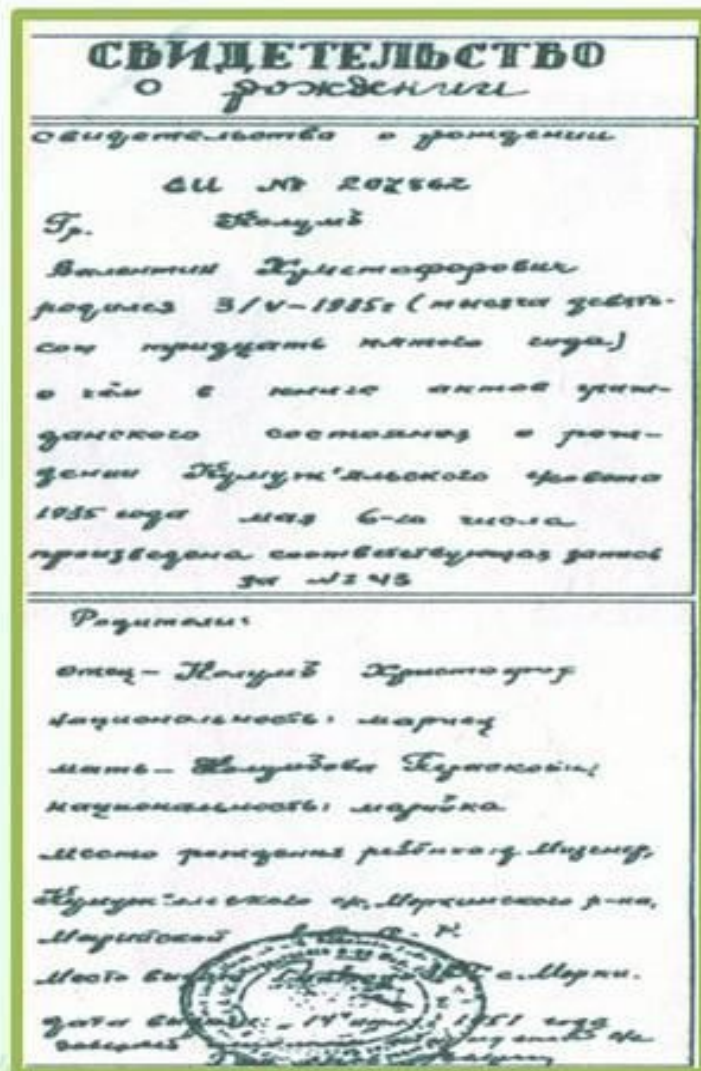 СВИДЕТЕЛЬСТВО
о рождении
свидетельства о рождении
СИ № 207862
Гр. Колумб
Валентин Христофорович
родился 3/V-1935г (тысяча девять-
сот тридцать пятого года)
о чём в книге актов граж-
данского состояния о рож-
дении Кужужъяльского
1935 года мая 6-го числа
произведена соответствующая запись
за №243
Родители:
отец – Колумб Христофор
национальность: мариец
мать – Колумбова
национальность: марийка
место рождения ребенка: д. Мизенер,
Моркинского р-на,
Марийской
Место с. Морки.
дата 14 1951 года